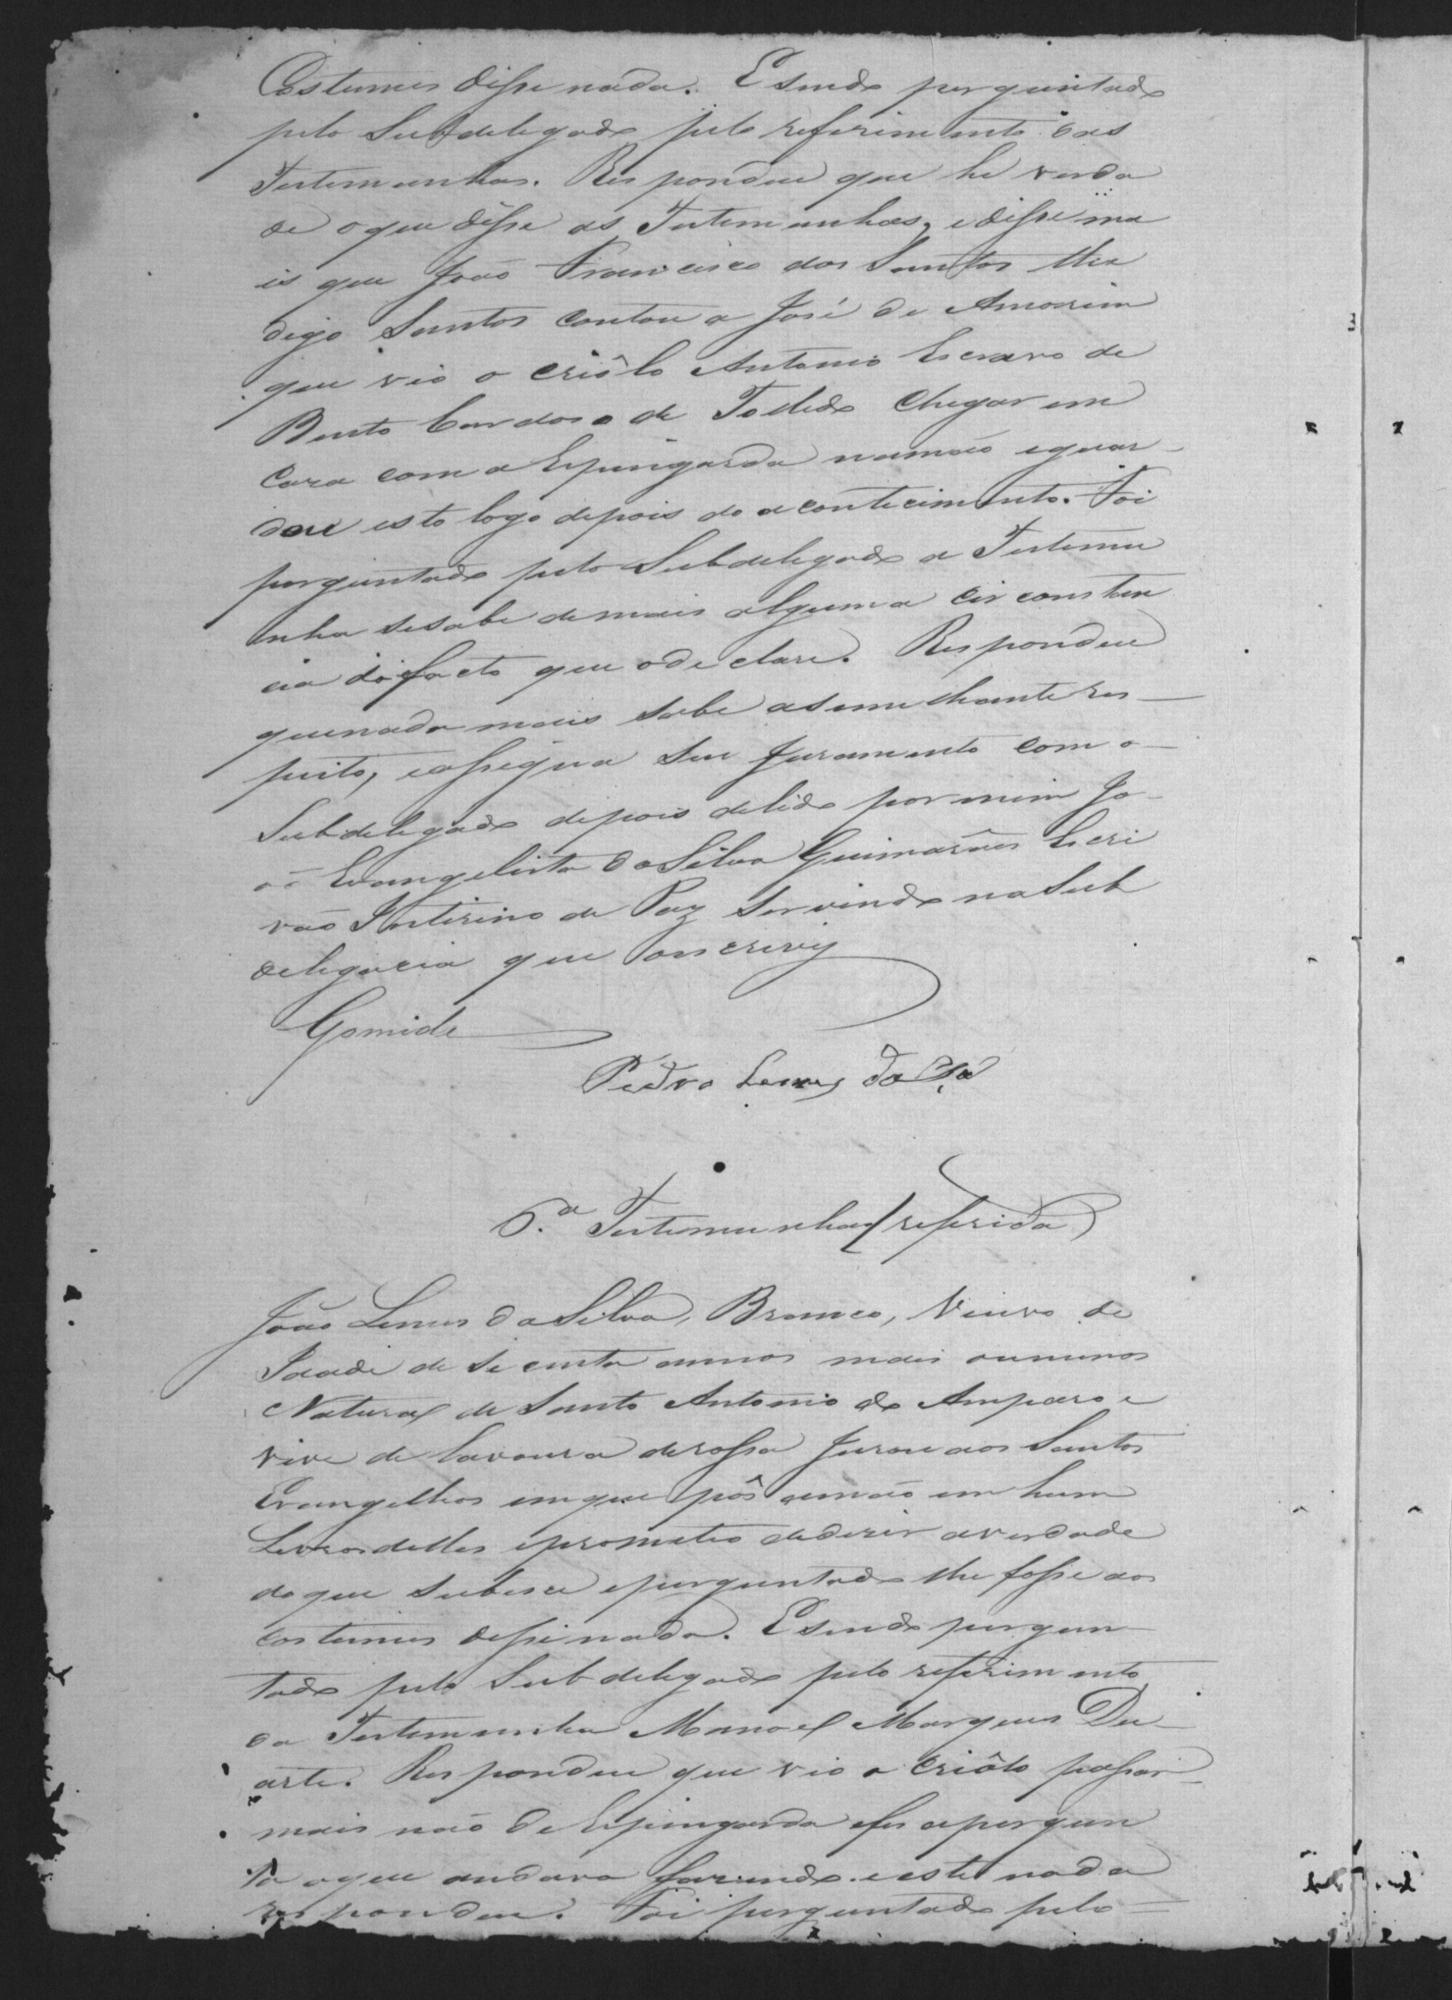 Costumes disse nada. E sendo perguntado
pelo Subdelegado pelo referimento das
Testemunhas. Respondeu que he verda
de o que disse as Testemunhas, e disse ma
is que João Francisco dos Santos
digo Santos contou a José de Amorim
que vio o criôlo Antonio Escravo de
Bento Cardoso de Tolledo chegar em
caza com a Espingarda na mão e guar-
dou isto logo depois do acontecimento. Foi
perguntado pelo Subdelegado a Testemu
nha se sabe de mais alguma circonstan
cia do facto que o declare. Respondeu
que nada mais sabe a semelhante res-
peito, e assigna seu Juramento com o
Subdelegado depois de lido por mim Jo-
ão Evangelista da Silva Guimarães Escri
vão Interino de Paz servindo na Sub
delegacia que o escrivy
Gomide
Pedro Lemes da Sa
6.a Testemunha (referida)
João Lemes da Silva, Branco, Viuvo de
Idade de secenta annos mais ou menos
Natural de Santo Antonio do Amparo e
vive de lavoura de rossa Jurou aos Santos
Evangelhos em que pôs a mão em hum
Livro delles e prometeo de dizer a verdade
do que subesse e perguntado lhe fosse aos
costumes disse nada. E sendo pergun-
tado pelo Subdelegado pelo referimento
da Testemunha Manoel Marques Du-
arte. Respondeu que vio o criôlo passar
mais não de Espingarda e fes a pergun
ta o que andava fazendo e este nada
respondeu. Foi perguntado pelo